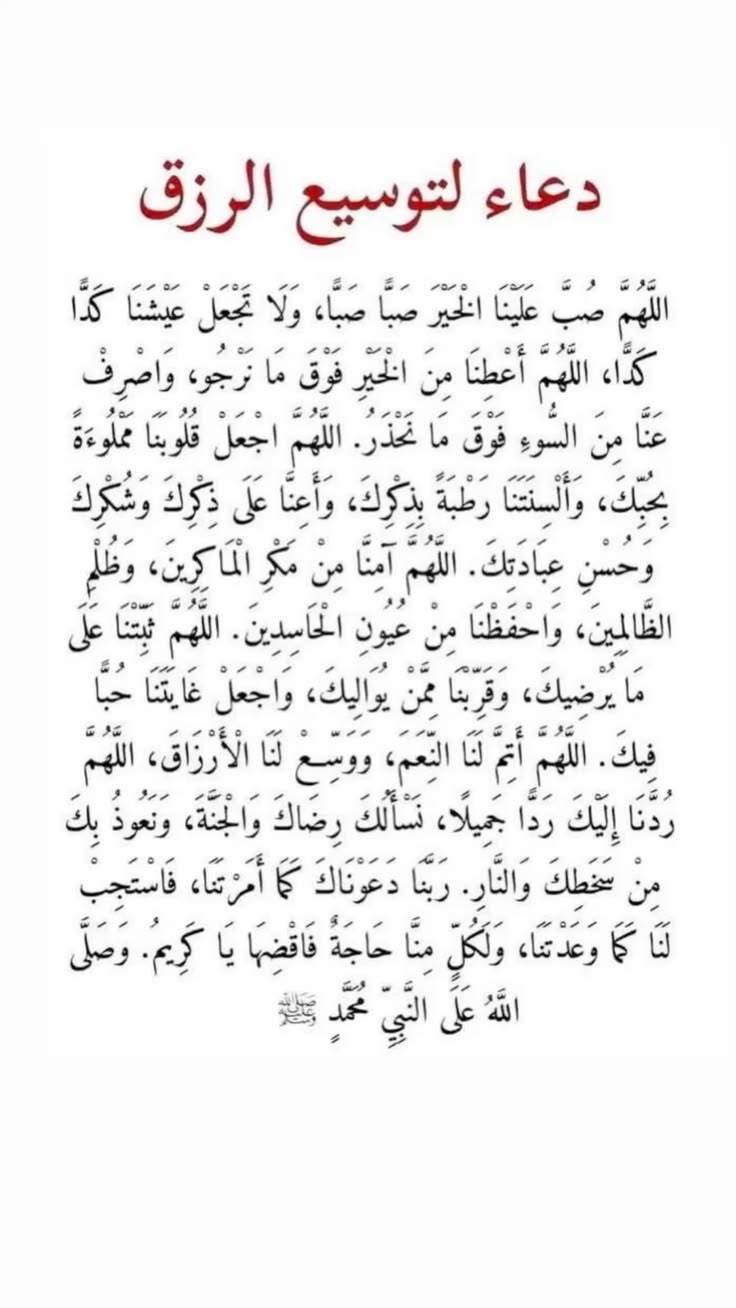 دعاء لتوسيع الرزق
اللَّهُمَّ صُبَّ عَلَيْنَا الْخَيْرَ صَبًّا صَبًّا، وَلَا تَجْعَلْ عَيْشَنَا كَدًّا
كَدًّا، اللَّهُمَّ أَعْطِنَا مِنَ الْخَيْرِ فَوْقَ مَا نَرْجُو، وَاصْرِفْ
عَنَّا مِنَ السُّوءِ فَوْقَ مَا نَحْذَرُ. اللَّهُمَّ اجْعَلْ قُلُوبَنَا مَمْلُوءَةً
بِحُبِّكَ، وَأَلْسِنَتَنَا رَطْبَةً بِذِكْرِكَ، وَأَعِنَّا عَلَى ذِكْرِكَ وَشُكْرِكَ
وَحُسْنِ عِبَادَتِكَ. اللَّهُمَّ آمِنَّا مِنْ مَكْرِ الْمَاكِرِينَ، وَظُلْمِ
الظَّالِمِينَ، وَاحْفَظْنَا مِنْ عُيُونِ الْحَاسِدِينَ. اللَّهُمَّ ثَبِّتْنَا عَلَى
مَا يُرْضِيكَ، وَقَرِّبْنَا مِمَّنْ يُوَالِيكَ، وَاجْعَلْ غَايَتَنَا حُبًّا
فِيكَ. اللَّهُمَّ أَتِمَّ لَنَا النِّعَمَ، وَوَسِّعْ لَنَا الْأَرْزَاقَ، اللَّهُمَّ
رُدَّنَا إِلَيْكَ رَدًّا جَمِيلًا، نَسْأَلُكَ رِضَاكَ وَالْجَنَّةَ، وَنَعُوذُ بِكَ
مِنْ سَخَطِكَ وَالنَّارِ. رَبَّنَا دَعَوْنَاكَ كَمَا أَمَرْتَنَا، فَاسْتَجِبْ
لَنَا كَمَا وَعَدْتَنَا، وَلَكُلٍّ مِنَّا حَاجَةٌ فَاقْضِهَا يَا كَرِيمُ. وَصَلَّى
اللَّهُ عَلَى النَّبِيِّ مُحَمَّدٍ ﷺ